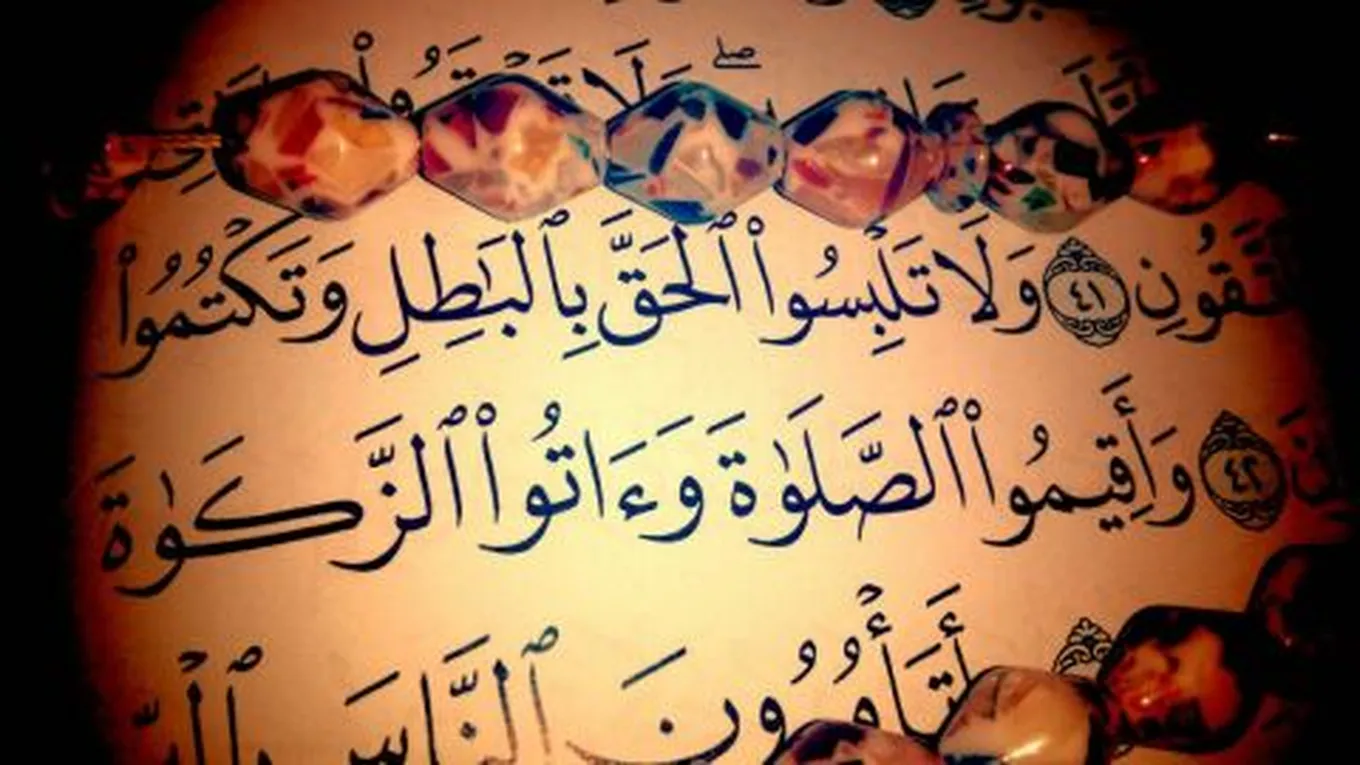 ۖ وَلَا
فَٱتَّقُونِ ٤١ وَلَا تَلْبِسُوا۟ ٱلْحَقَّ بِٱلْبَٰطِلِ وَتَكْتُمُوا۟
٤٢ وَأَقِيمُوا۟ ٱلصَّلَوٰةَ وَءَاتُوا۟ ٱلزَّكَوٰةَ
أَتَأْمُرُونَ ٱلنَّاسَ